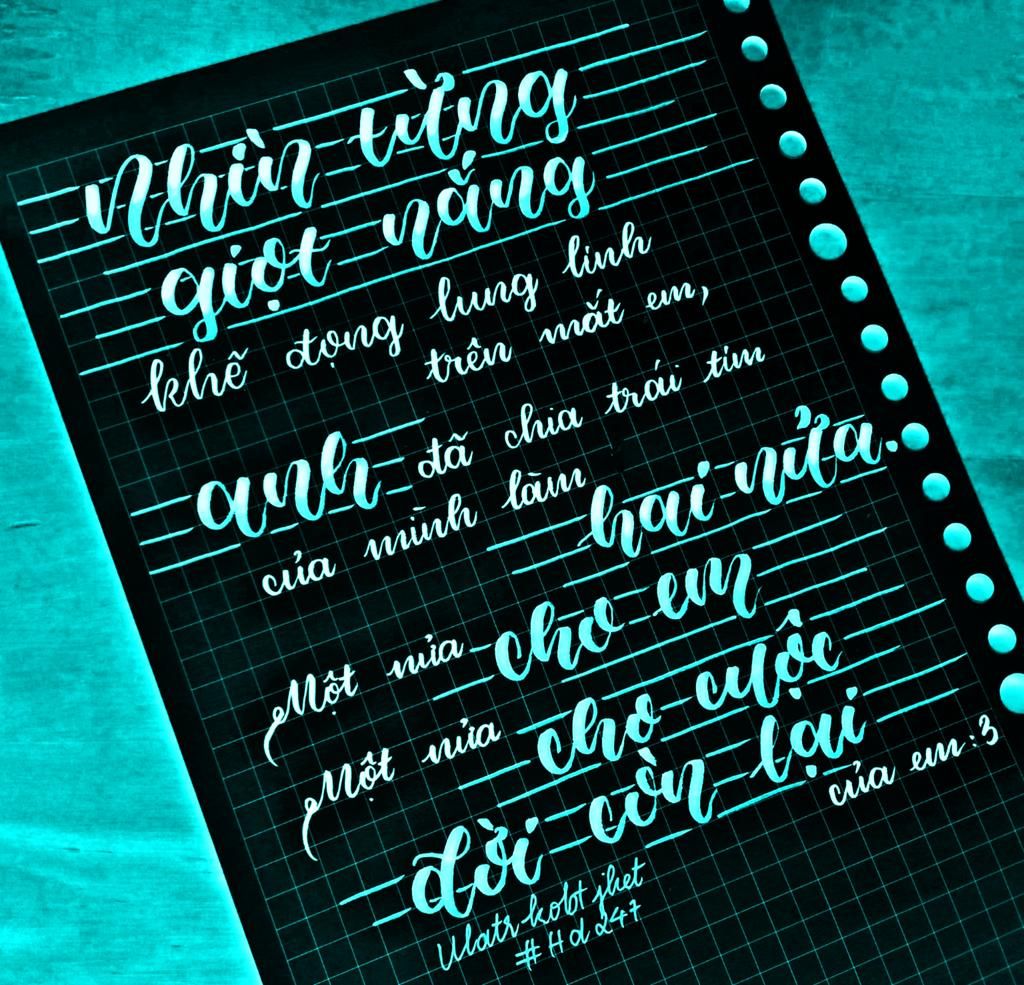 Nhìn từng
giọt nắng
khẽ đọng lung linh
trên mắt em,
anh đã chia trái tim
của mình làm hai nửa.
Một nửa cho em
Một nửa cho cuộc
đời còn lại
của em:3
# Hd 247